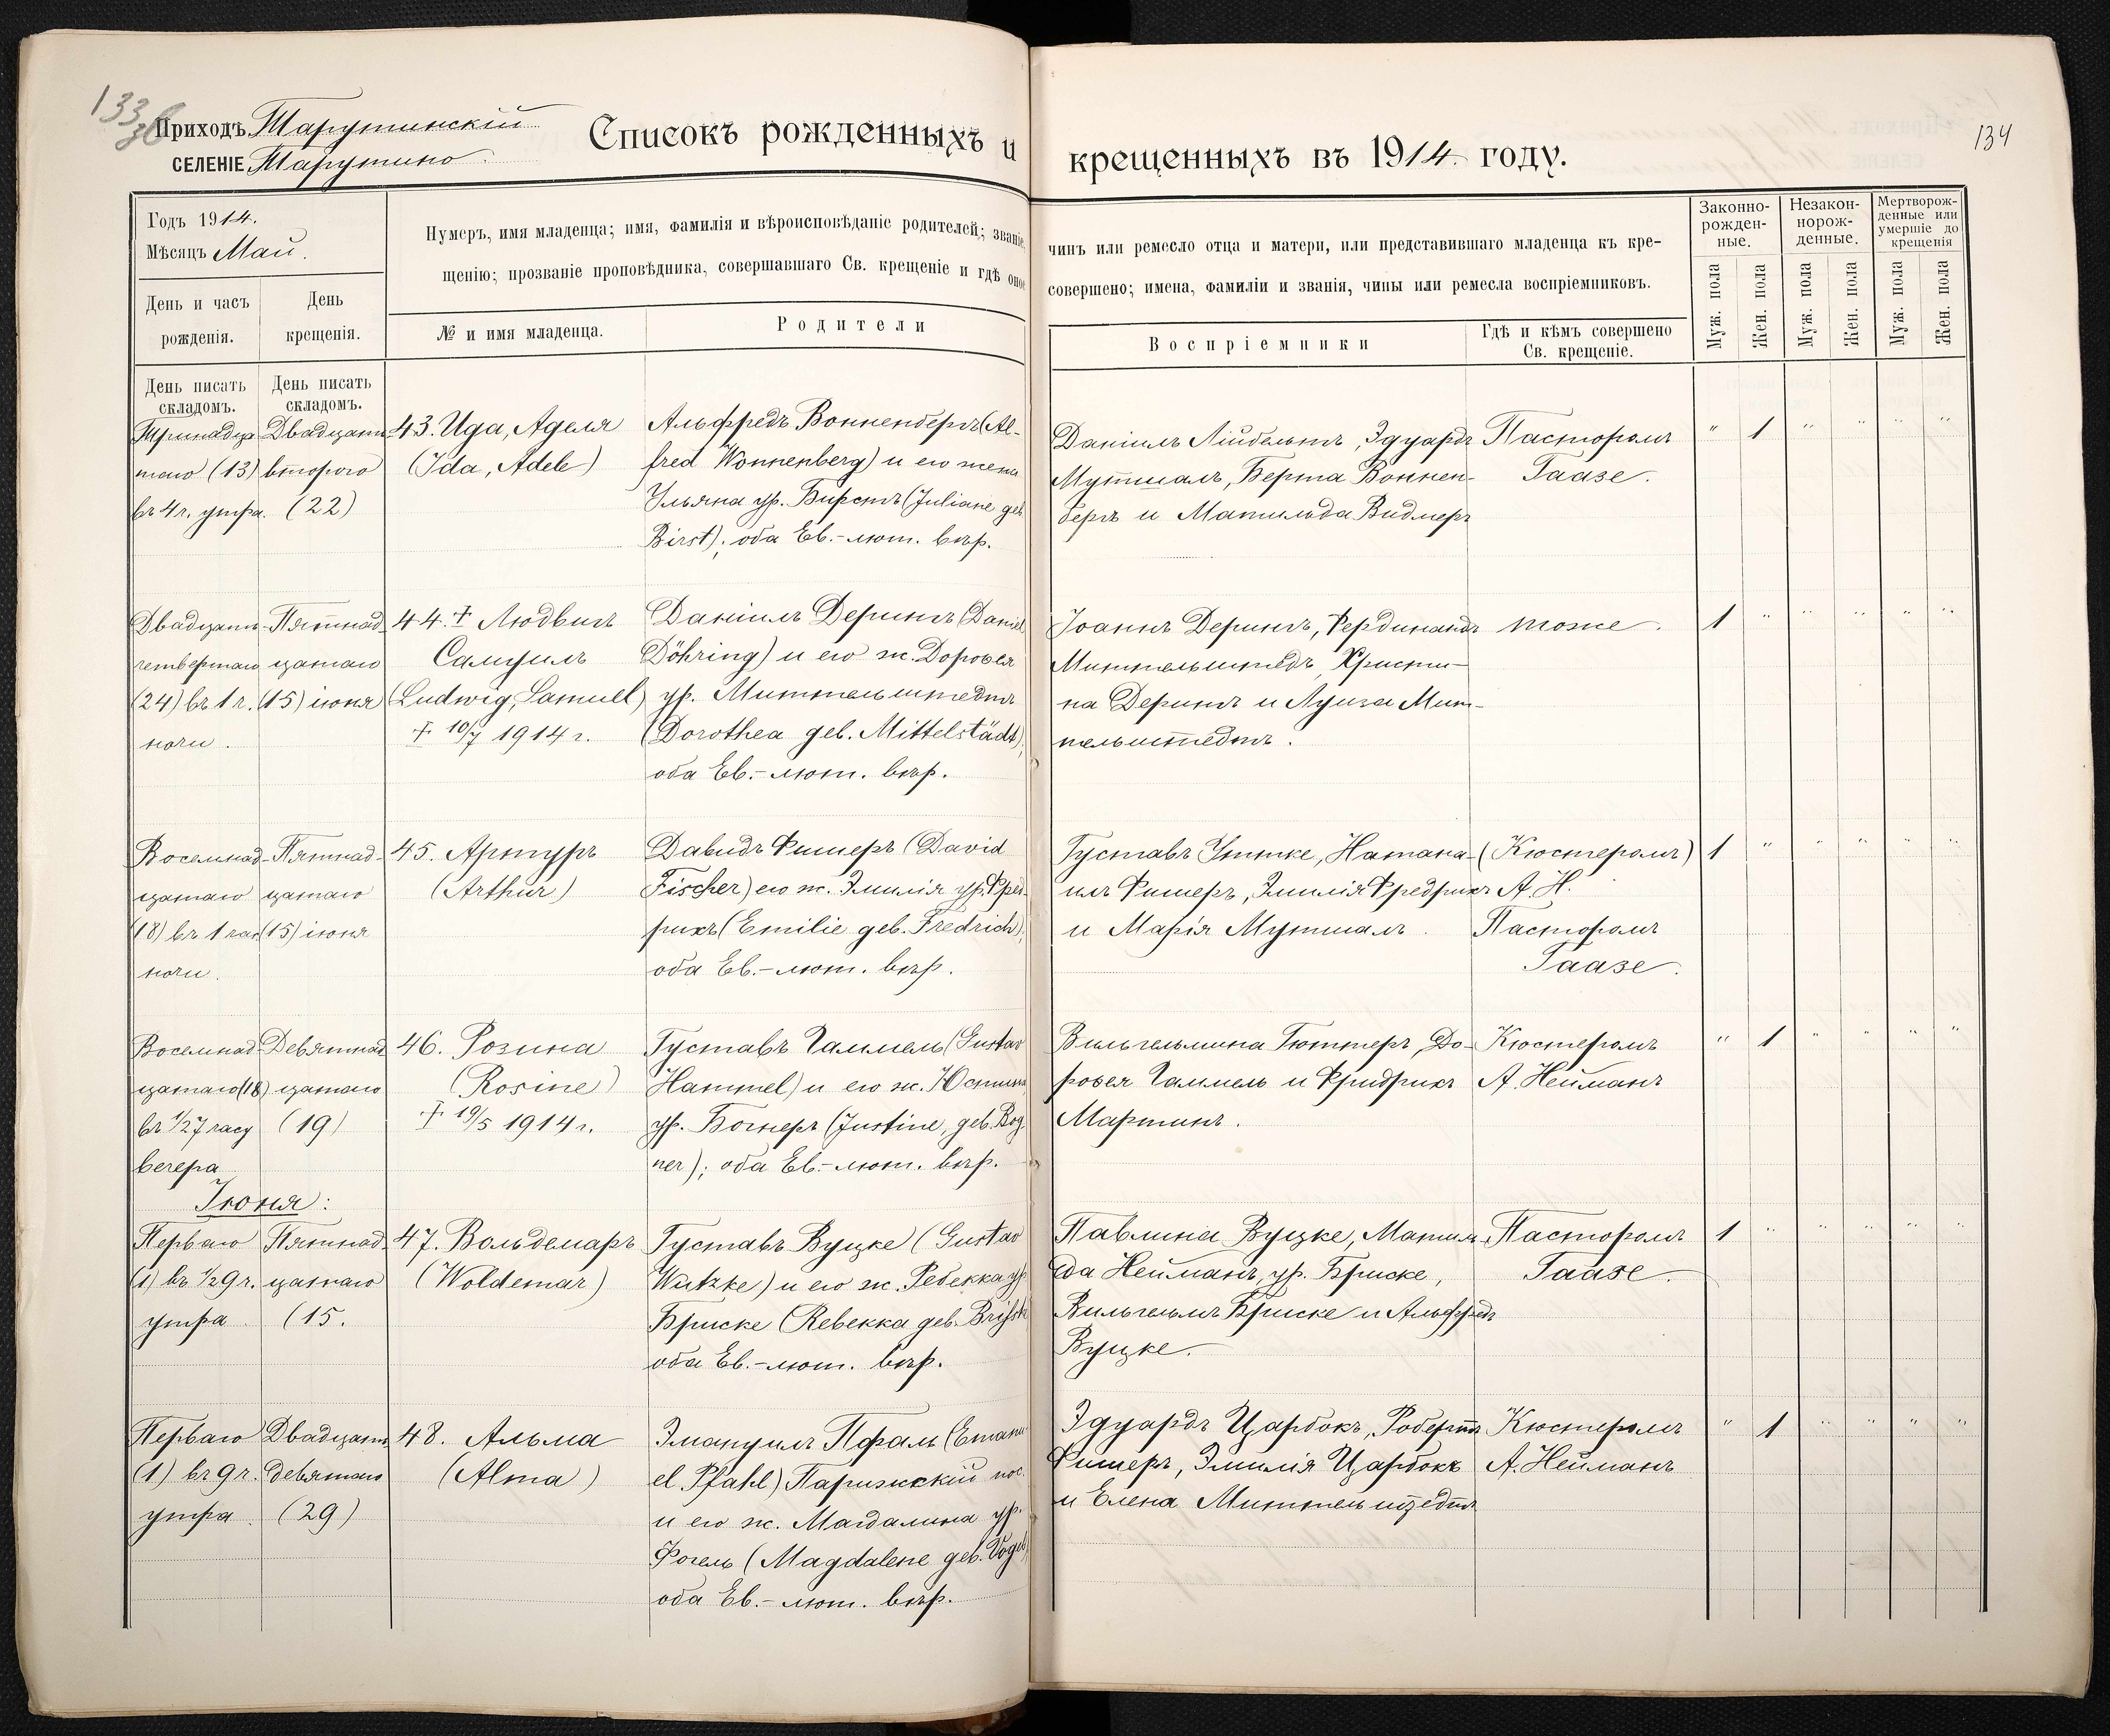 133
зв
134
Приходъ Тарутинскій
СЕЛЕНІЕ Тарутино
Списокъ рожденныхъ и крещенныхъ въ 1914 году.
Годъ 1914.
Мѣсяцъ Май.
День и часъ рожденія.
День крещенія.
Нумеръ, имя младенца; имя, фамилія и вѣроисповѣданіе родителей; званіе, чинъ или ремесло отца и матери, или представившаго младенца къ кре-
щенію; прозваніе проповѣдника, совершавшаго Св. крещеніе и гдѣ оное совершено; имена, фамиліи и званія, чины или ремесла воспріемниковъ.
№ и имя младенца.
Родители
Воспріемники
Гдѣ и кѣмъ совершено
Св. крещеніе.
Законно-
рожден-
ные.
Незакон-
норож-
денные.
Мертворож-
денные или
умершіе до
крещенія
Муж. пола
Жен. пола
Муж. пола
Жен. пола
Муж. пола
Жен. пола
День писать
складомъ.
День писать
складомъ.
Тринадца
таго (13)
въ 4 ч. утра.
Двадцать
второго
(22)
43. Ида, Аделя
(Ida, Adele)
Альфредъ Вонненбергъ (Al-
fred Wonnenberg) и его жена
Ульяна ур. Бирстъ (Juliane geb.
Birst); оба Ев.-лют. вѣр.
Даніилъ Лійбельтъ, Эдуардъ
Мутшалъ, Берта Воннен-
бергъ и Матильда Видмеръ
Пасторомъ
Гаазе.
" 1 " " " "
Двадцать
четвертаго
(24) въ 1 ч.
ночи.
Пятнад
цатаго
(15) іюня
44. † Людвигъ
Самуилъ
(Ludwig, Samuel)
† 10/7 1914 г.
Даніилъ Дерингъ (Daniel
Döhring) и его ж. Доровея
ур. Миттельштедтъ
(Dorothea geb. Mittelstädt),
оба Ев.-лют. вѣр.
Іоаннъ Дерингъ, Фердинандъ
Миттельштедъ, Христи-
на Дерингъ и Луиза Мит-
тельштедтъ.
тоже.
1 " " " " "
Восемнад-
цатаго
(18) въ 1 час
ночи.
Пятнад-
цатаго
(15) іюня
45. Артуръ
(Arthur)
Давидъ Фишеръ (David
Fischer) его ж. Эмилія ур. Фред-
рихъ (Emilie geb. Fredrich),
оба Ев.-лют. вѣр.
Густавъ Уттке, Натана-
илъ Фишеръ, Эмилія Фредрихъ
и Марія Мутшалъ.
(Кюстеромъ)
А. Н.
Пасторомъ
Гаазе.
1 " " " " "
Восемнад-
цатаго (18)
въ 1/2 7 часу
вечера
Девятнад
цатаго
(19)
46. Розина
(Rosine)
† 19/5 1914 г.
Густавъ Гаммель (Gustav
Hammel) и его ж. Юстина
ур. Богнеръ (Justine, geb. Bog-
ner); оба Ев.-лют. вѣр.
Вильгельмина Гюттнеръ, До-
ровея Гаммель и Фридрихъ
Мартинъ.
Кюстеромъ
А. Нейманъ
" 1 " " " "
Іюня:
Перваго
(1) въ 1/2 9 ч.
утра
Пятнад
цатаго
(15.
47. Вольдемаръ
(Woldemar)
Густавъ Вуцке (Gustav
Wutzke) и его ж. Ребекка ур.
Бриске (Rebekka geb. Briske
оба Ев.-лют. вѣр.
Павлина Вуцке, Матиль
да Нейманъ, ур. Бриске,
Вильгельмъ Бриске и Альфредъ
Вуцке.
Пасторомъ
Гаазе.
1 " " " " "
Перваго
(1) въ 9 ч.
утра
Двадцать
девятаго
(29)
48. Альма
(Alma)
Эмануилъ Пфаль (Emanu-
el Pfahl) Парижскій пос.
и его ж. Магдалина ур.
Фогель (Magdalene geb. Vogel),
оба Ев.-лют. вѣр.
Эдуардъ Царбокъ, Робертъ
Фишеръ, Эмилія Царбокъ
и Елена Миттельштедтъ
Кюстеромъ
А. Нейманъ
" 1 " " " "